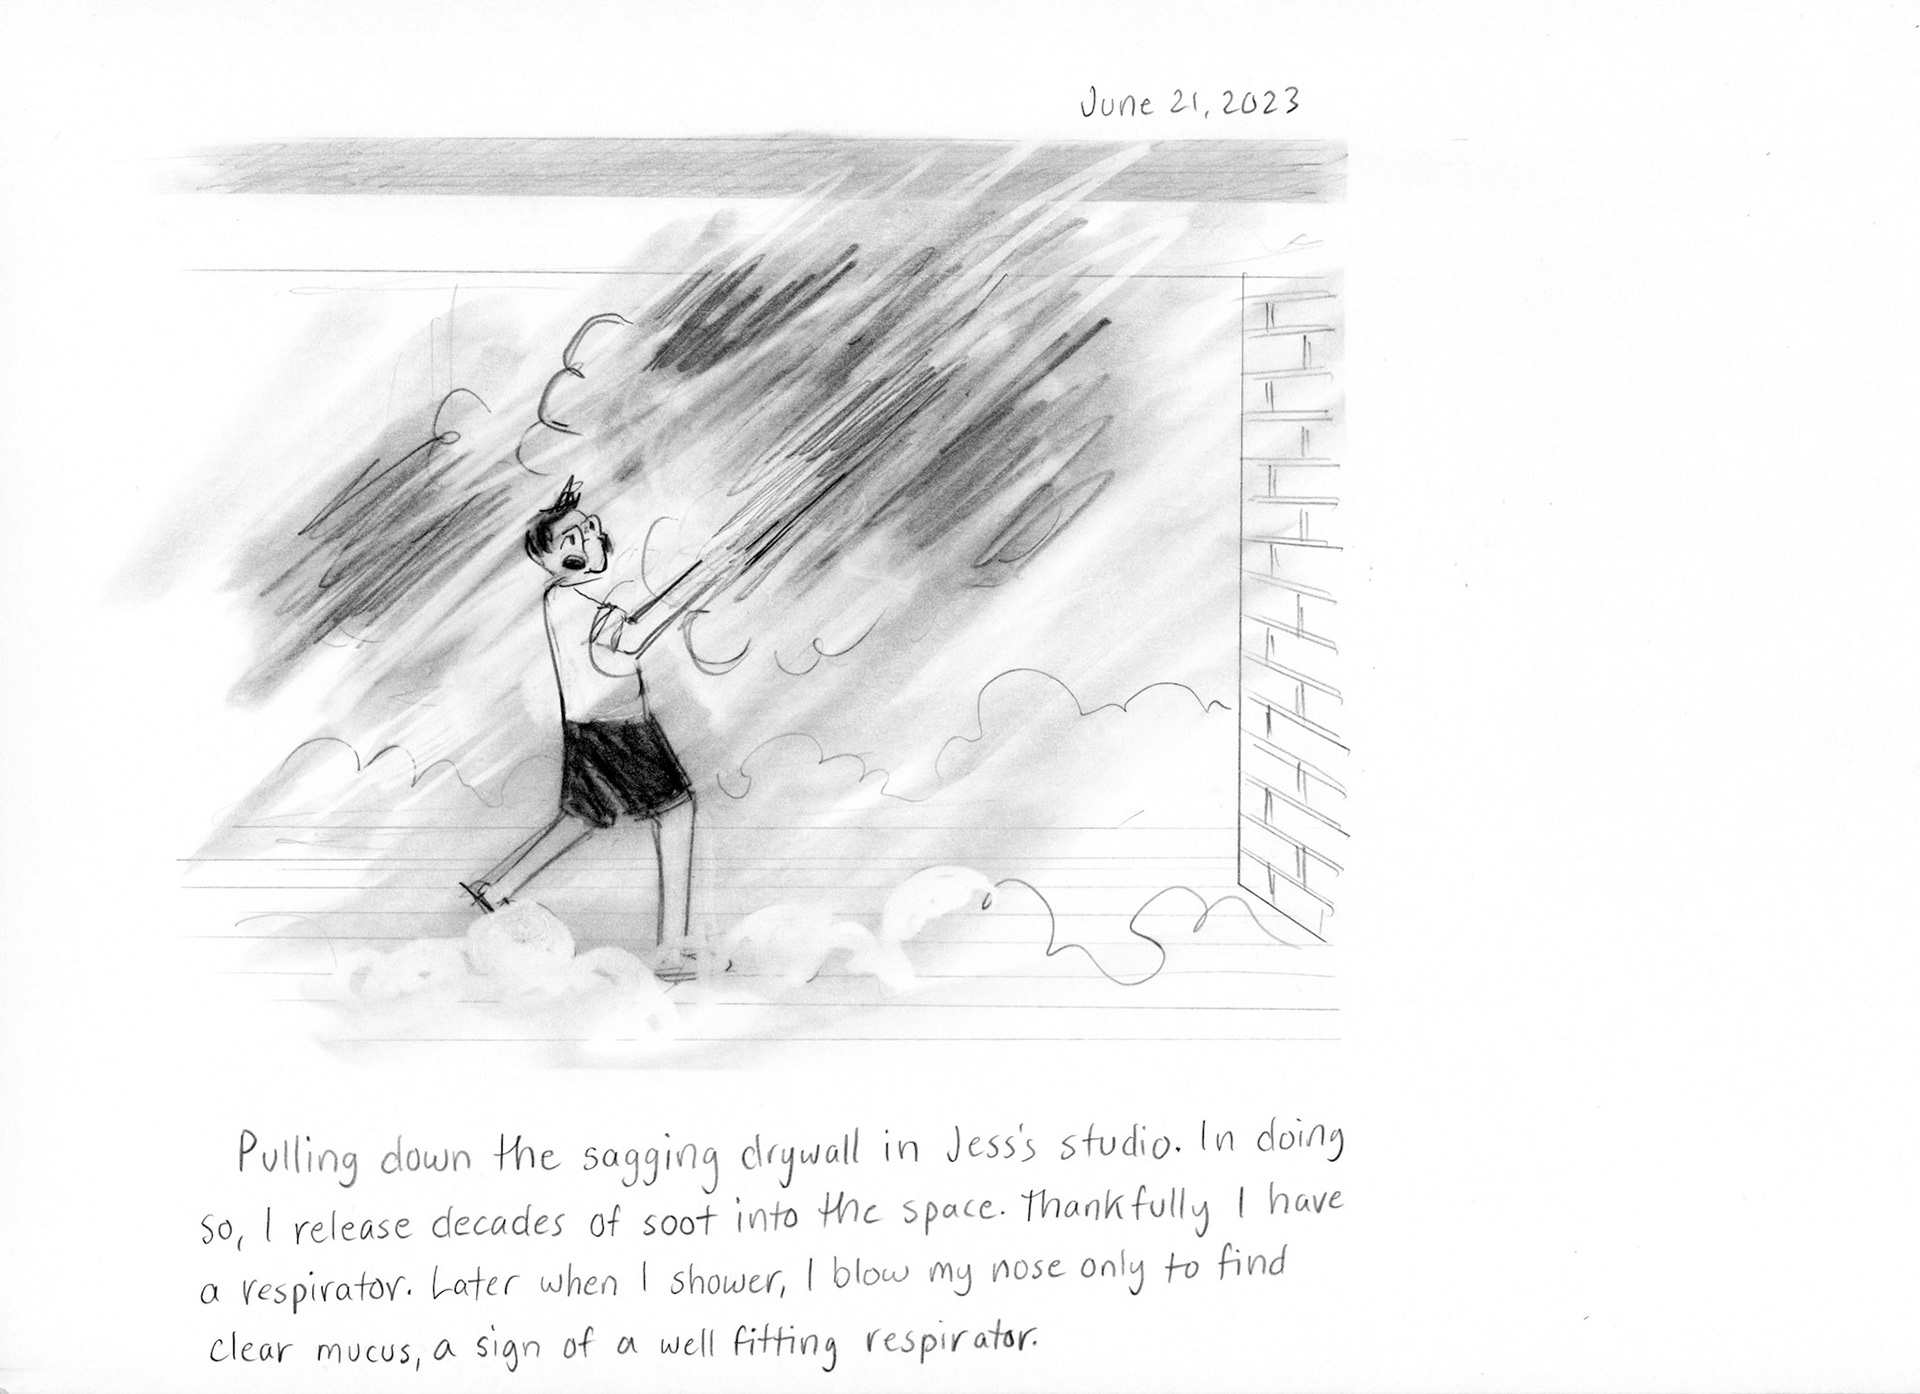 June 21, 2023
Pulling down the sagging drywall in Jess's studio. In doing
so, I release decades of soot into the space. Thankfully I have
a respirator. Later when I shower, I blow my nose only to find
clear mucus, a sign of a well fitting respirator.